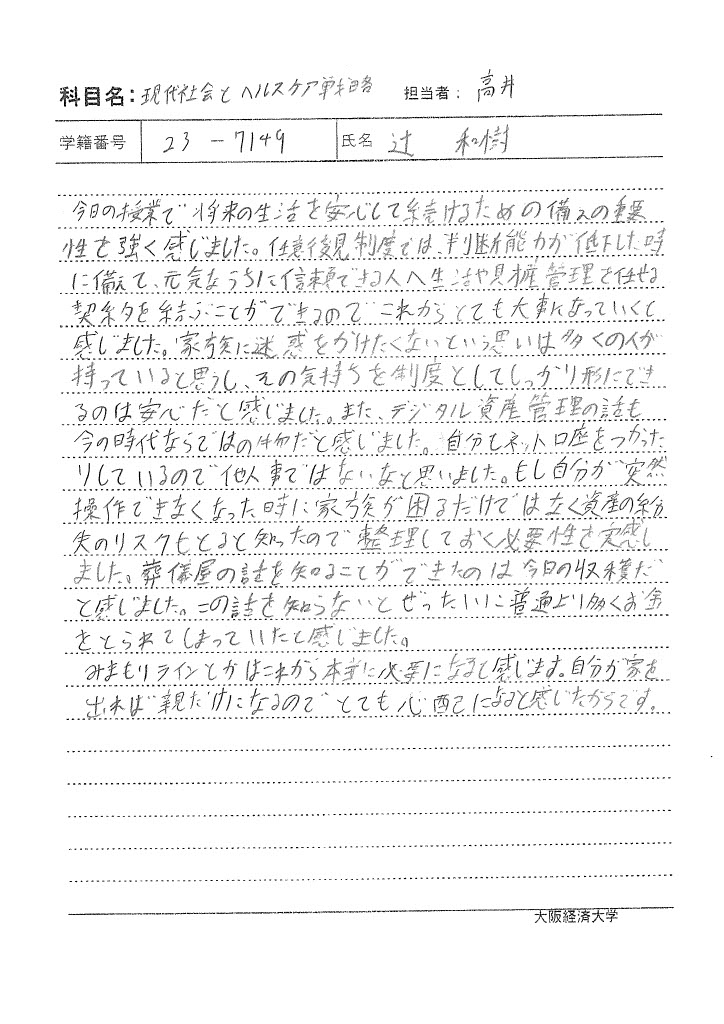 科目名：現代社会とヘルスケア戦略 担当者：高井
学籍番号 23-7149 氏名 辻 和樹
今日の授業で将来の生活を安心して続けるための備えの重要
性を強く感じました。任意後見制度では、判断能力が低下した時
に備えて、元気なうちに信頼できる人へ生活や財産管理を任せる
契約を結ぶことができるので これからとても大事になっていくと
感じました。家族に迷惑をかけたくないという思いは多くの人が
持っていると思うし、その気持ちを制度としてしっかり形にでき
るのは安心だと感じました。また、デジタル資産管理の話も
今の時代ならではの物だと感じました。自分もネット口座をつかった
りしているので他人事ではないなと思いました。もし自分が突然
操作できなくなった時に家族が困るだけではなく資産の紛
失のリスクもとると知ったので整理しておく必要性を実感し
ました。葬儀屋の話を知ることができたのは今日の収穫だ
と感じました。この話を知らないとぜったいに普通より多くお金
をとられてしまっていたと感じました。
みまもりラインとかはこれから本当に必要になると感じます。自分が家を
出れば親だけになるので とても心配になると感じたからです。
大阪経済大学